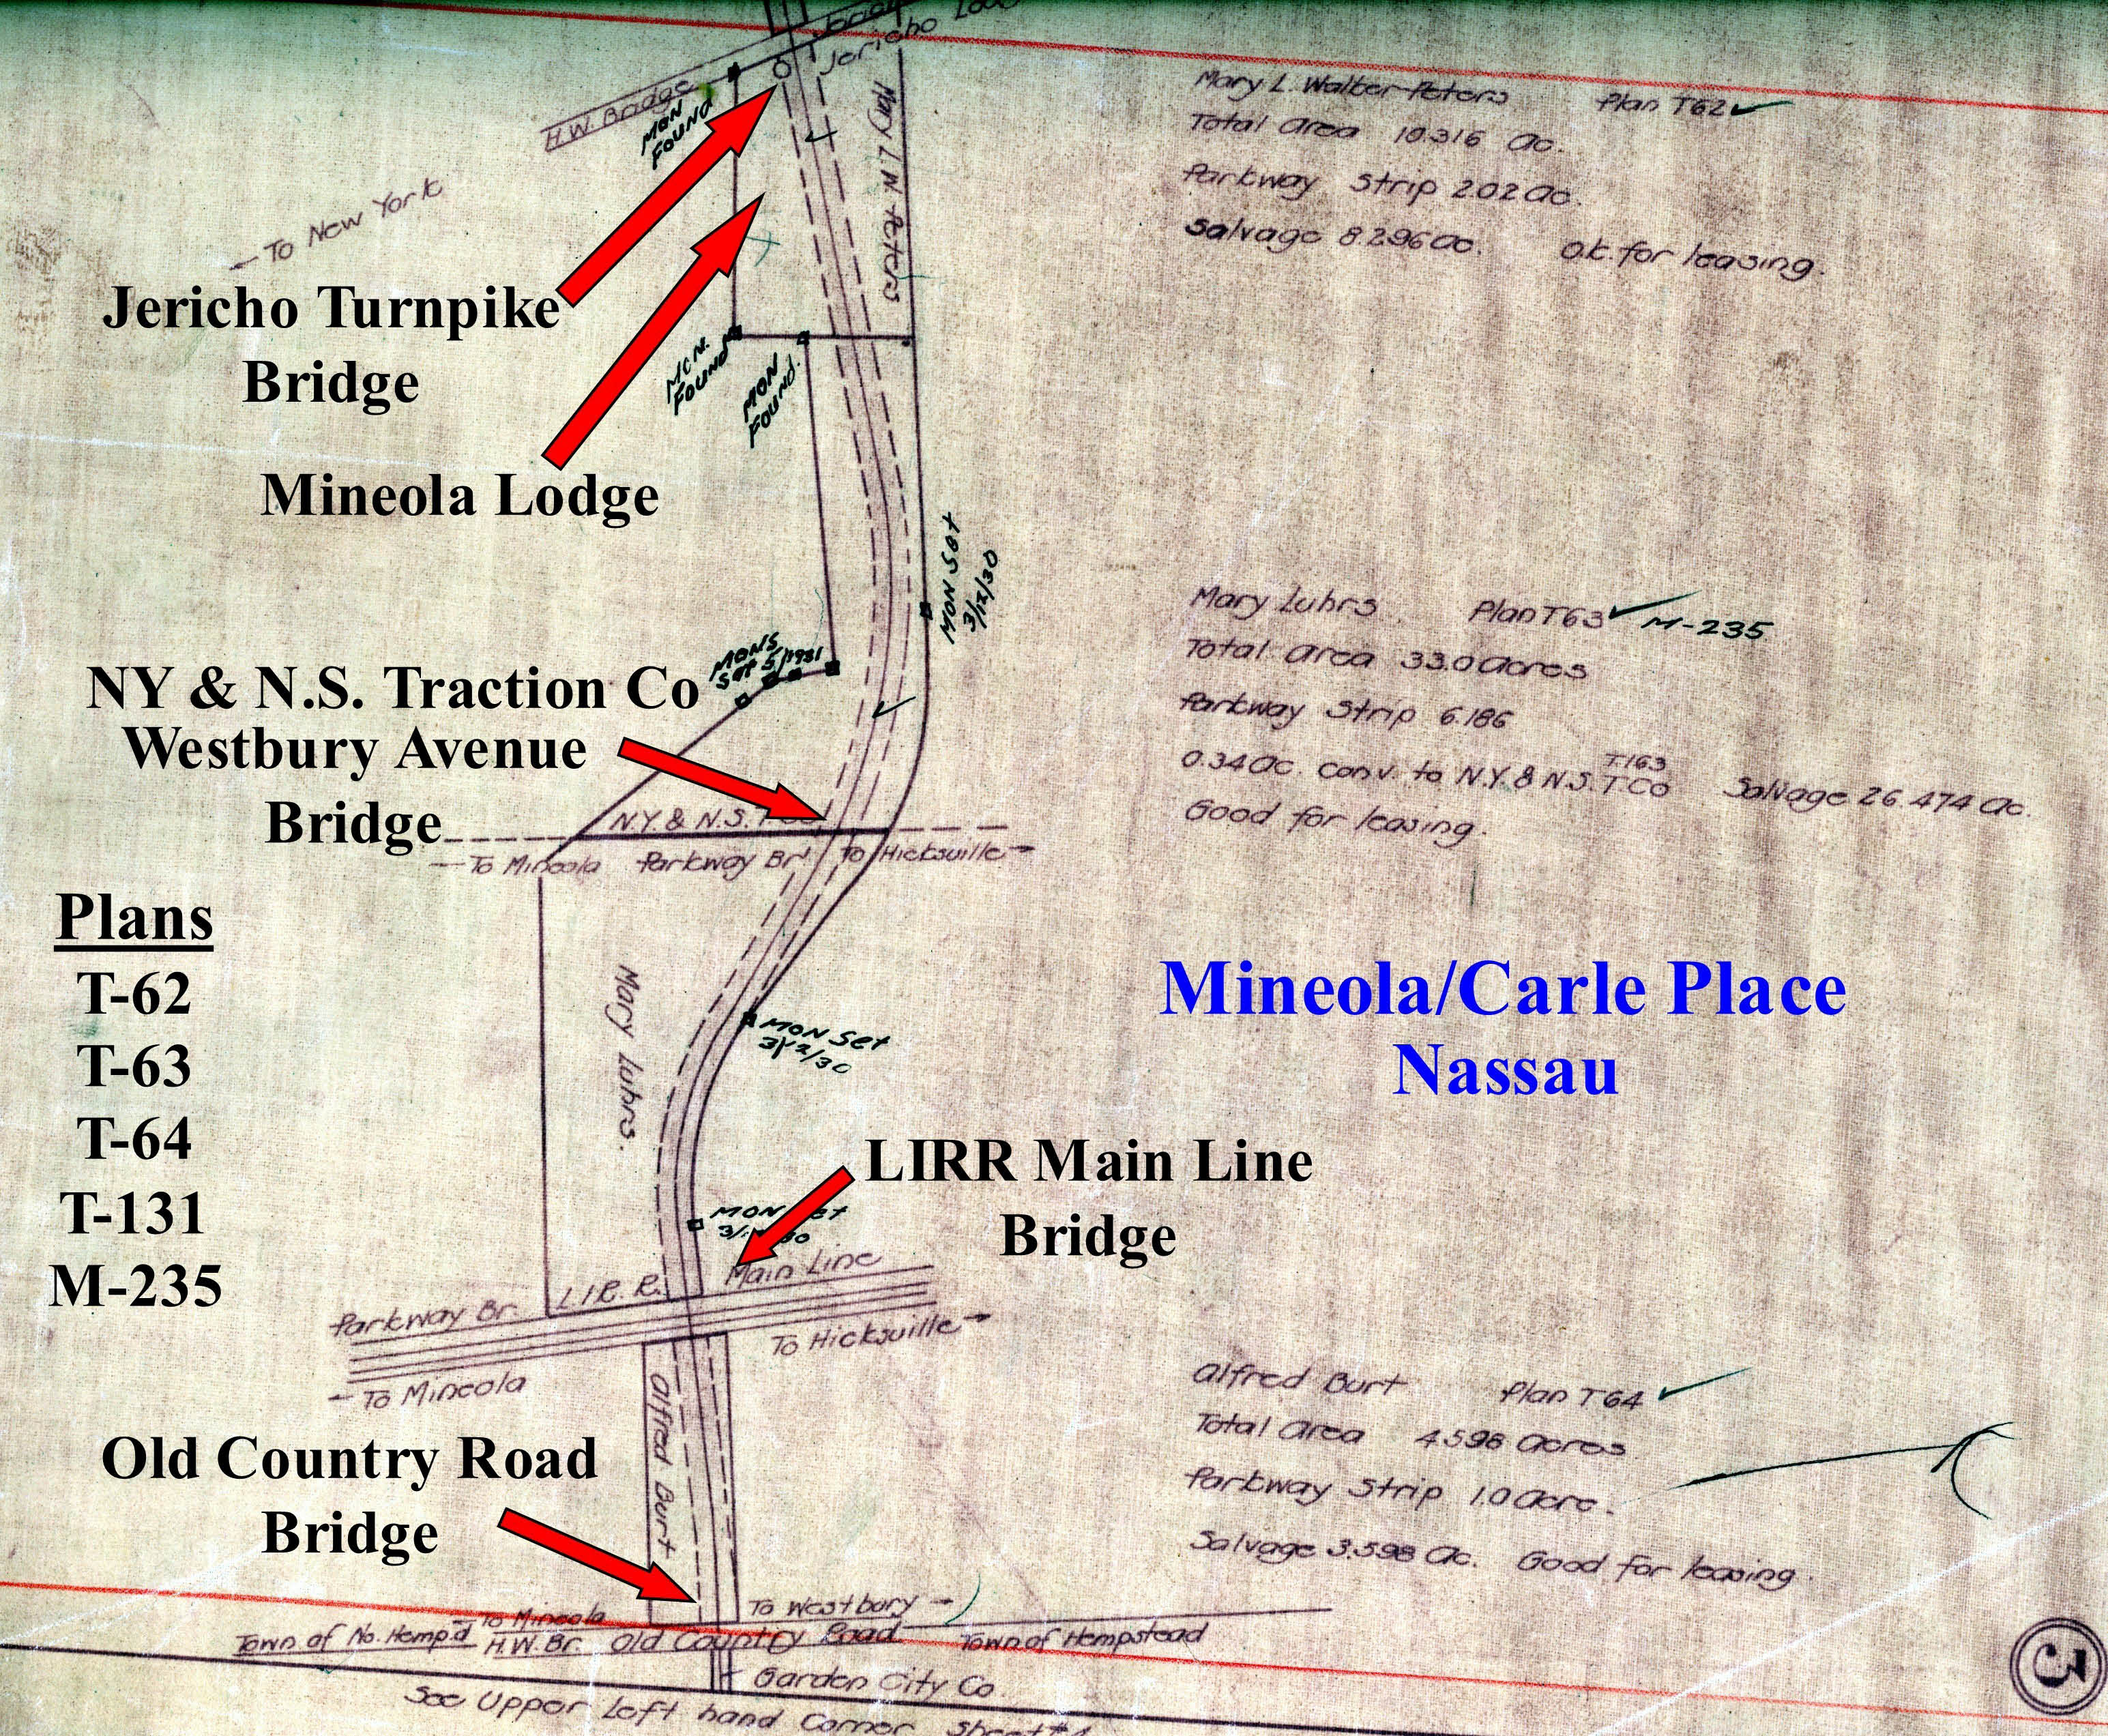 Jericho
H.W. Bridge
MON
FOUND
Mary L. W. Peters
Mary L. Walber-Peters Plan T62
Total area 10.316 Ac.
Parkway Strip 2.02 ac.
Salvage 8.296 ac. O.k. for leasing.
← To New York
Jericho Turnpike
Bridge
MON.
FOUND
MON
FOUND.
Mineola Lodge
MON Set
3/12/30
Mary Luhrs Plan T63 M-235
Total area 33.0 acres
Parkway Strip 6.186
T163
0.34 ac. conv. to N.Y. & N.S. T Co Salvage 26.474 ac.
Good for leasing.
MONS
Set 5/1931
NY & N.S. Traction Co
Westbury Avenue
Bridge
N.Y. & N.S.
← To Mineola Parkway Br. To Hicksville →
Plans
T-62
T-63
T-64
T-131
M-235
Mary Luhrs.
Mineola/Carle Place
Nassau
MON Set
3/12/30
LIRR Main Line
Bridge
MON
L.I.R.R. Main Line
Parkway Br.
To Hicksville →
← To Mineola
Alfred Burt
Alfred Burt Plan T64
Total area 4.598 acres
Parkway Strip 1.0 acre.
Salvage 3.598 ac. Good for leasing.
Old Country Road
Bridge
To Mineola To Westbury →
Town of No. Hemp'd H.W. Br. Old Country Road Town of Hempstead
Garden City Co.
See Upper Left hand Corner Sheet #4
3